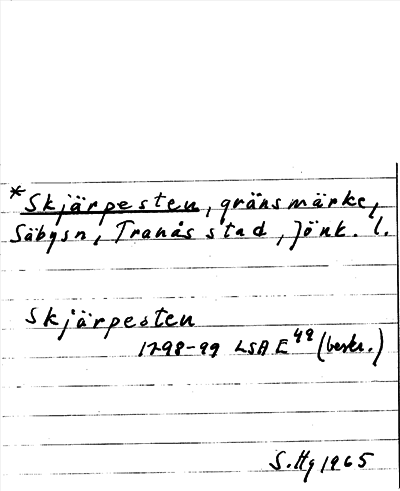 *Skjärpesten, gränsmärke,
Säbysn, Tranås stad, Jönk. l.
Skjärpesten
1798-99 LSA E49 (beskr.)
S. Hg 1965